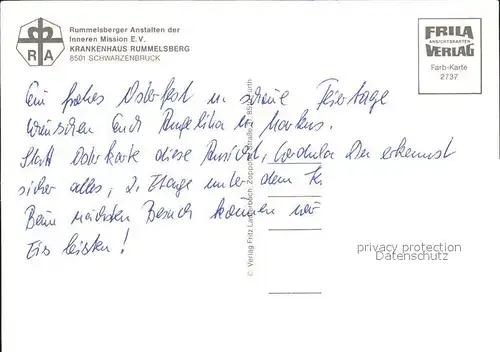 Rummelsberger Anstalten der
Inneren Mission E.V.
KRANKENHAUS RUMMELSBERG
8501 SCHWARZENBRUCK
R A
FRILA
ANSICHTSKARTEN
VERLAG
Farb-Karte
2737
Ein frohes Osterfest u. schöne Feiertage
wünschen Euch Angelika u. Markus.
Statt Osterkarte diese Ansicht, Cordula Du erkennst
sicher alles, 2. Etage unter dem K.
Beim nächsten Besuch können wir
Eis essen!
© Verlag Fritz Lauterbach, 8510 Fürth
privacy protection
Datenschutz